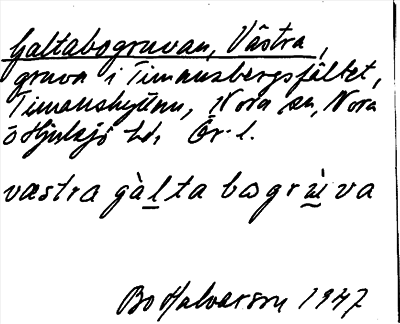 Galtabogruvan, Västra,
gruva i Timansbergsfältet,
Timanshyttan, Nora sn, Nora
o Hjulsjö bd, Ör. l.
västra gàlta bogrùva
Bo Halvarson 1947